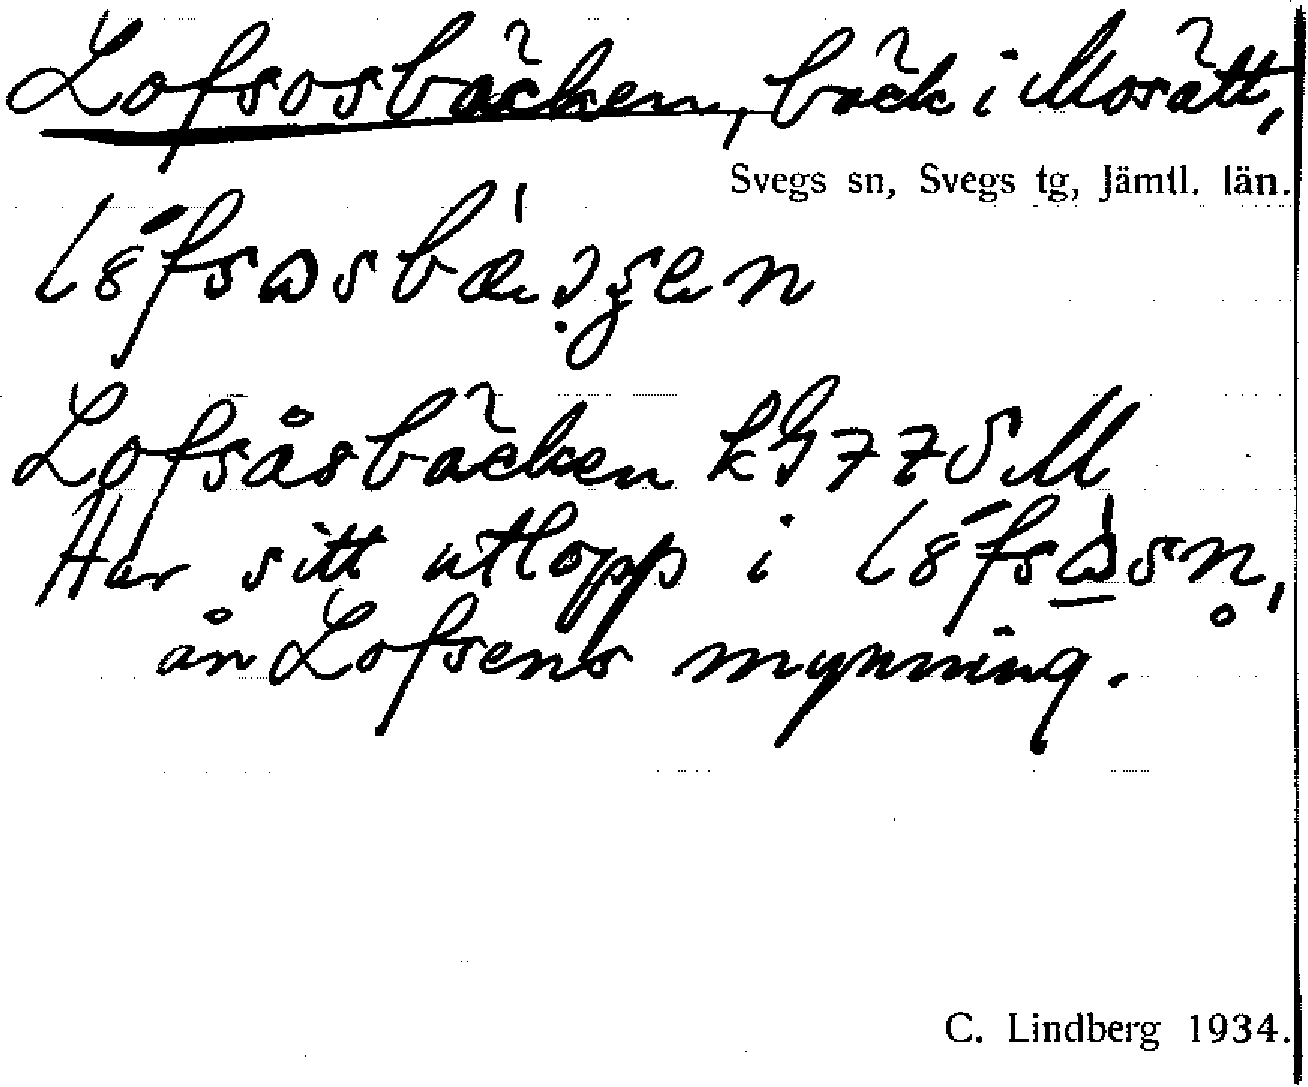 Lofsosbäcken, bäck i Morätt,
Svegs sn, Svegs tg, Jämtl. län.
Lofsåsbäcken kG 77 SM
Har sitt utlopp i
ån Lofsens mynning.
C. Lindberg 1934.